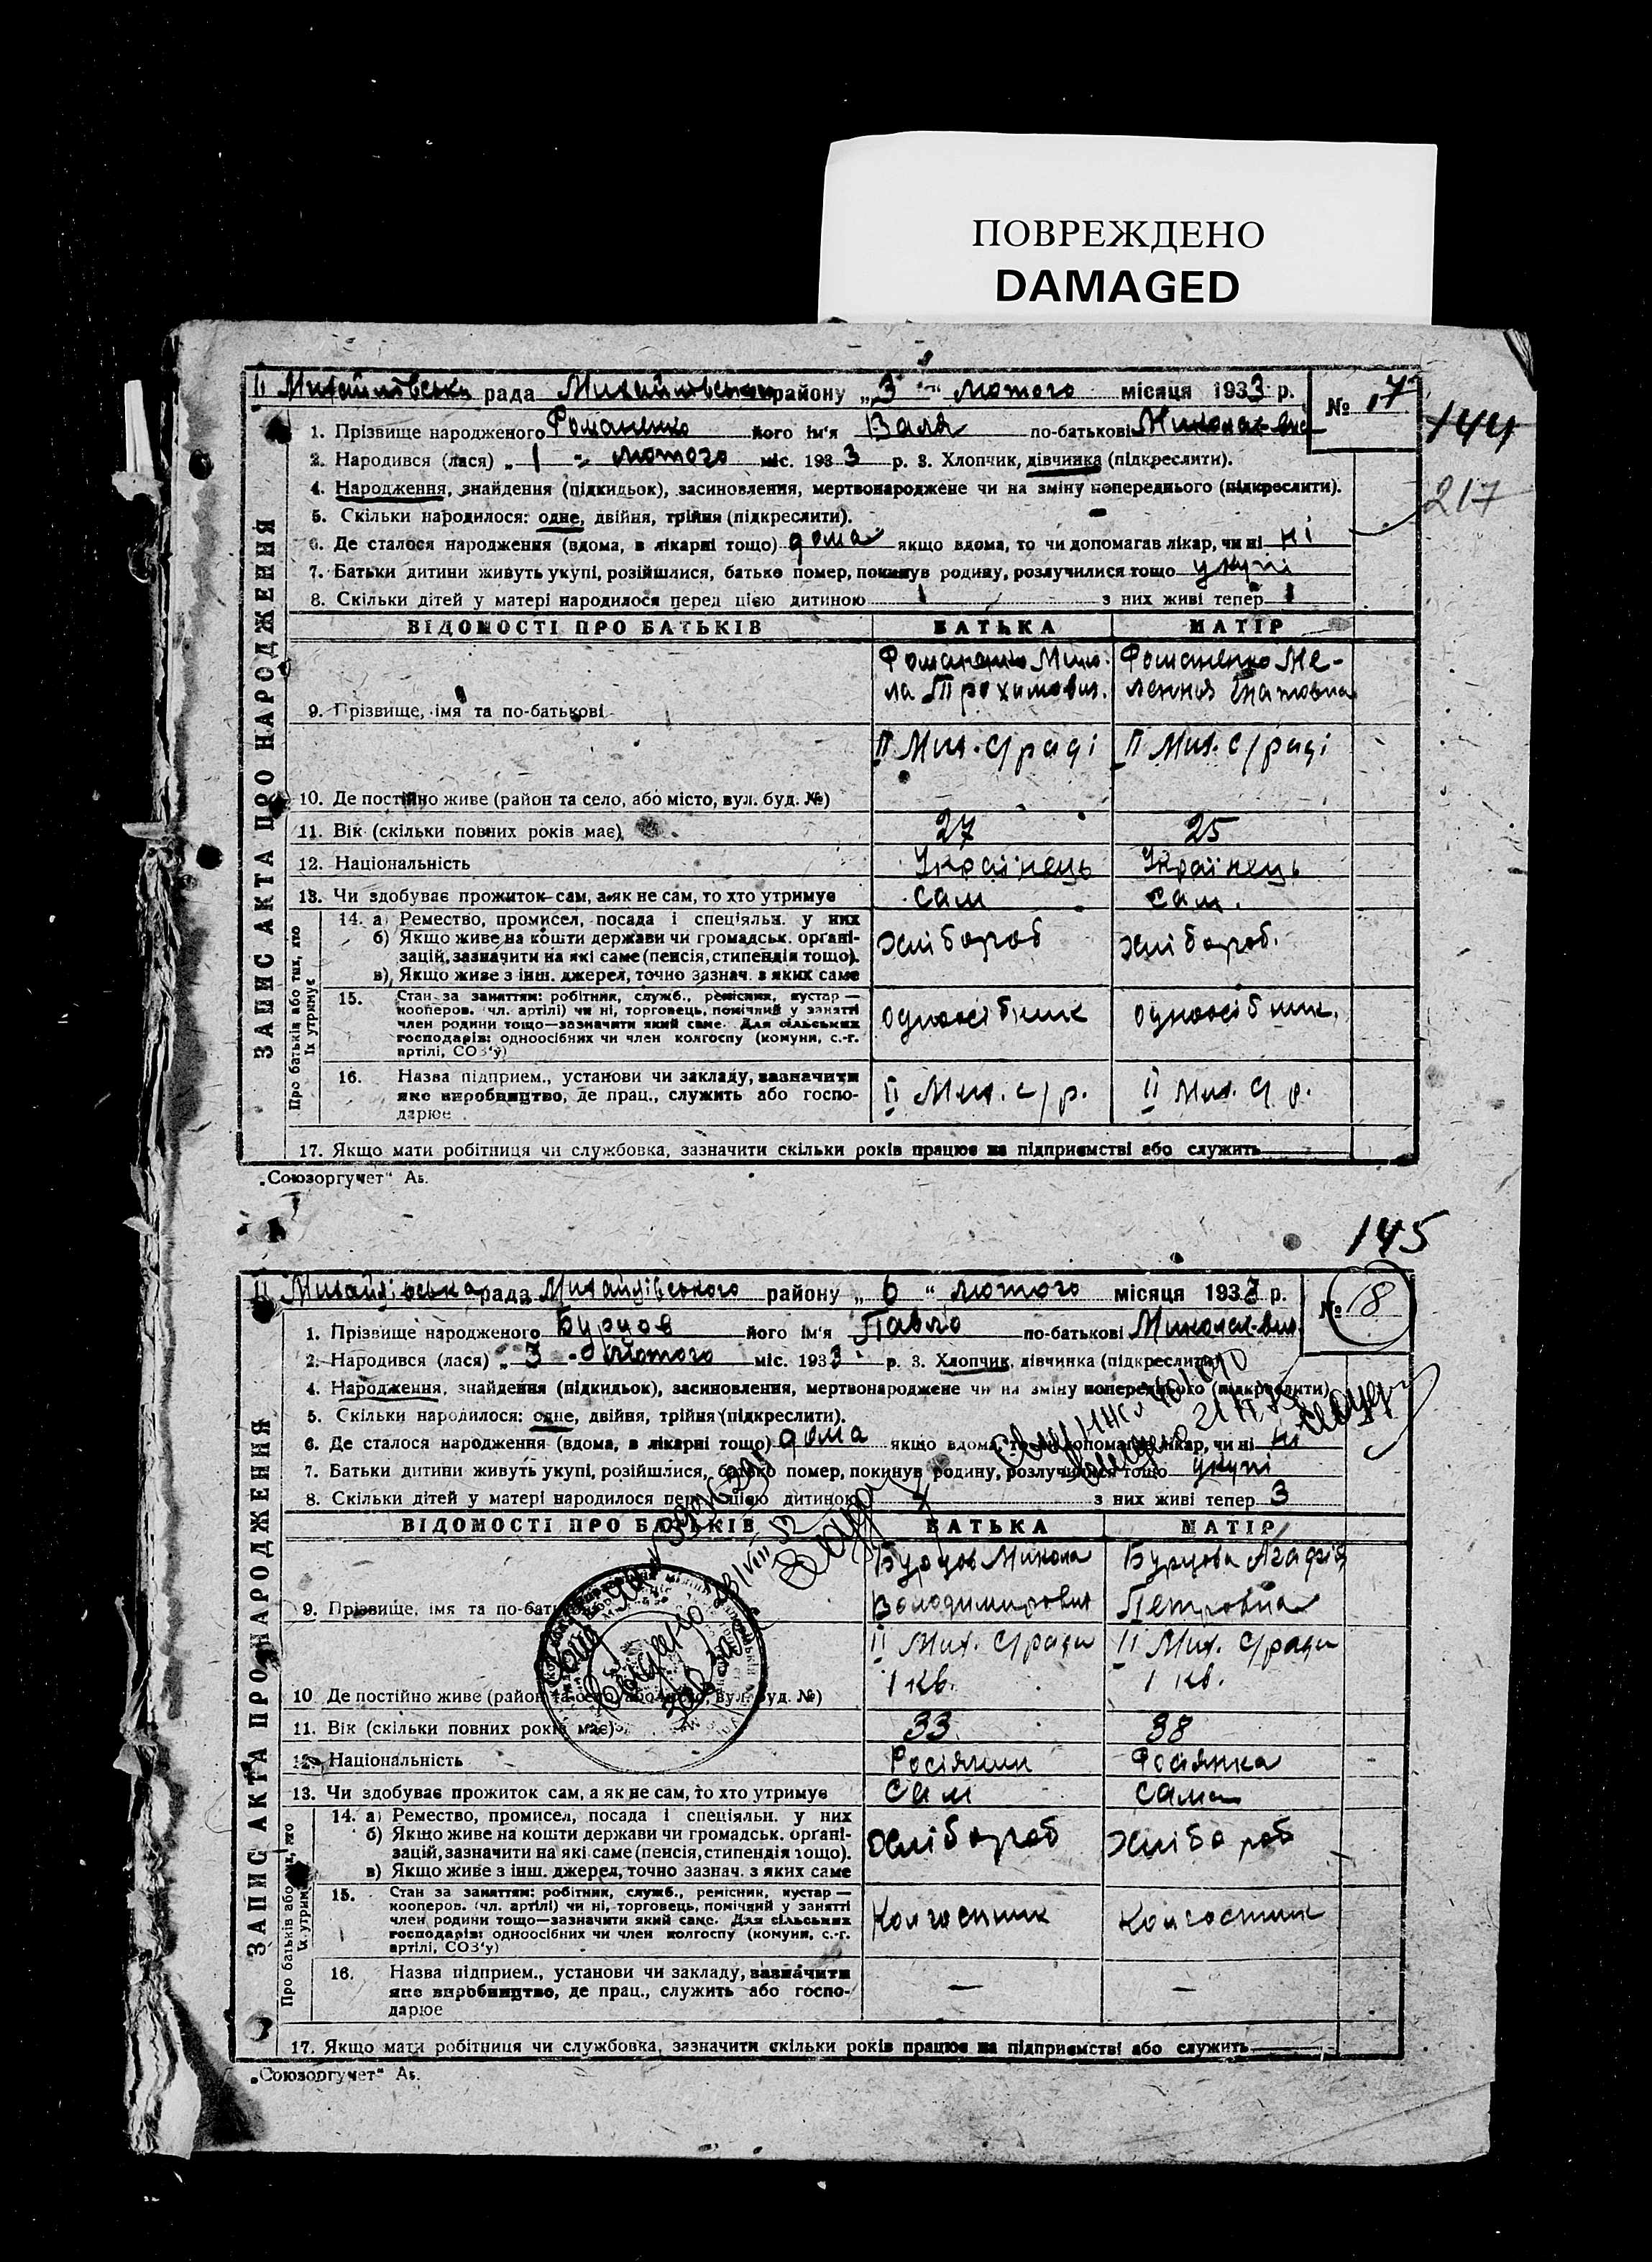 ПОВРЕЖДЕНО
DAMAGED
II Михайлівська рада Михайлівського району „3“ лютого місяця 1933 р.
№ 7
144
1. Прізвище народженого Романенко його ім'я Валя по-батькові
2. Народився (лася) „1“ лютого міс. 1933 р. 3. Хлопчик, дівчинка (підкреслити).
217
4. Народження, знайдення (підкидьок), засиновлення, мертвонароджене чи на зміну попереднього (підкреслити).
5. Скільки народилося: одне, двійня, трійня (підкреслити).
6. Де сталося народження (вдома, в лікарні тощо) дома якщо вдома, то чи допомагав лікар, чи ні ні
7. Батьки дитини живуть укупі, розійшлися, батько помер, покинув родину, розлучилися тощо укупі
8. Скільки дітей у матері народилося перед цією дитиною 1 з них живі тепер 1
ЗАПИС АКТА ПРО НАРОДЖЕННЯ
ВІДОМОСТІ ПРО БАТЬКІВ БАТЬКА МАТІР
Романенко Мико- Романенко Ме-
ла Трохимович. ланія
9. Прізвище, імя та по-батькові
II Мих. с/раді II Мих. с/раді
10. Де постійно живе (район та село, або місто, вул. буд. №)
11. Вік (скільки повних років має) 27 25
12. Національність Українець Українець
13. Чи здобуває прожиток сам, а як не сам, то хто утримує сам сам.
Про батьків або тих, хто їх утримує
14. а) Ремество, промисел, посада і спеціяльн. у них
б) Якщо живе на кошти держави чи громадськ. органі-
зацій, зазначити на які саме (пенсія, стипендія тощо).
в) Якщо живе з інш. джерел, точно зазнач. з яких саме
хлібороб хлібороб.
15. Стан за заняттям: робітник, служб., ремісник, кустар —
кооперов. (чл. артілі) чи ні, торговець, помічний у занятті
член родини тощо—зазначити який саме. Для сільських
господарів: одноосібних чи член колгоспу (комуни, с.-г.
артілі, СОЗ'у)
одноосібник одноосібник.
16. Назва підприєм., установи чи закладу, зазначити
яке виробництво, де прац., служить або госпо-
дарює
II Мих. с/р. II Мих. с/р.
17. Якщо мати робітниця чи службовка, зазначити скільки років працює на підприємстві або служить
„Союзоргучет“ Аз.
145
II Михайлівська рада Михайлівського району „6“ лютого місяця 1933 р.
№ 8
1. Прізвище народженого Бурцов його ім'я Павло по-батькові
2. Народився (лася) „3“ лютого міс. 1933 р. 3. Хлопчик, дівчинка (підкреслити)
4. Народження, знайдення (підкидьок), засиновлення, мертвонароджене чи на зміну попереднього (підкреслити)
5. Скільки народилося: одне, двійня, трійня (підкреслити).
6. Де сталося народження (вдома, в лікарні тощо) дома якщо вдома, то чи допомагав лікар, чи ні ні
7. Батьки дитини живуть укупі, розійшлися, батько помер, покинув родину, розлучилися тощо укупі
8. Скільки дітей у матері народилося перед цією дитиною з них живі тепер 3
ЗАПИС АКТА ПРО НАРОДЖЕННЯ
ВІДОМОСТІ ПРО БАТЬКІВ БАТЬКА МАТІР
Бурцов Микола Бурцова Агафія
Володимирович Петровна
9. Прізвище, імя та по-батькові
II Мих. с/ради II Мих. с/ради
1 кв. 1 кв.
10 Де постійно живе (район та село, або місто, вул. буд. №)
11. Вік (скільки повних років має) 33 38
12. Національність Росіянин Росіянка
13. Чи здобуває прожиток сам, а як не сам, то хто утримує сам сама
Про батьків або тих, хто їх утримує
14. а) Ремество, промисел, посада і спеціяльн. у них
б) Якщо живе на кошти держави чи громадськ. органі-
зацій, зазначити на які саме (пенсія, стипендія тощо).
в) Якщо живе з інш. джерел, точно зазнач. з яких саме
хлібороб хлібороб
15. Стан за заняттям: робітник, служб., ремісник, кустар —
кооперов. (чл. артілі) чи ні, торговець, помічний у занятті
член родини тощо—зазначити який саме. Для сільських
господарів: одноосібних чи член колгоспу (комуни, с.-г.
артілі, СОЗ'у)
Колгоспник Колгоспник
16. Назва підприєм., установи чи закладу, зазначити
яке виробництво, де прац., служить або госпо-
дарює
— —
17. Якщо мати робітниця чи службовка, зазначити скільки років працює на підприємстві або служить
„Союзоргучет“ Аз.